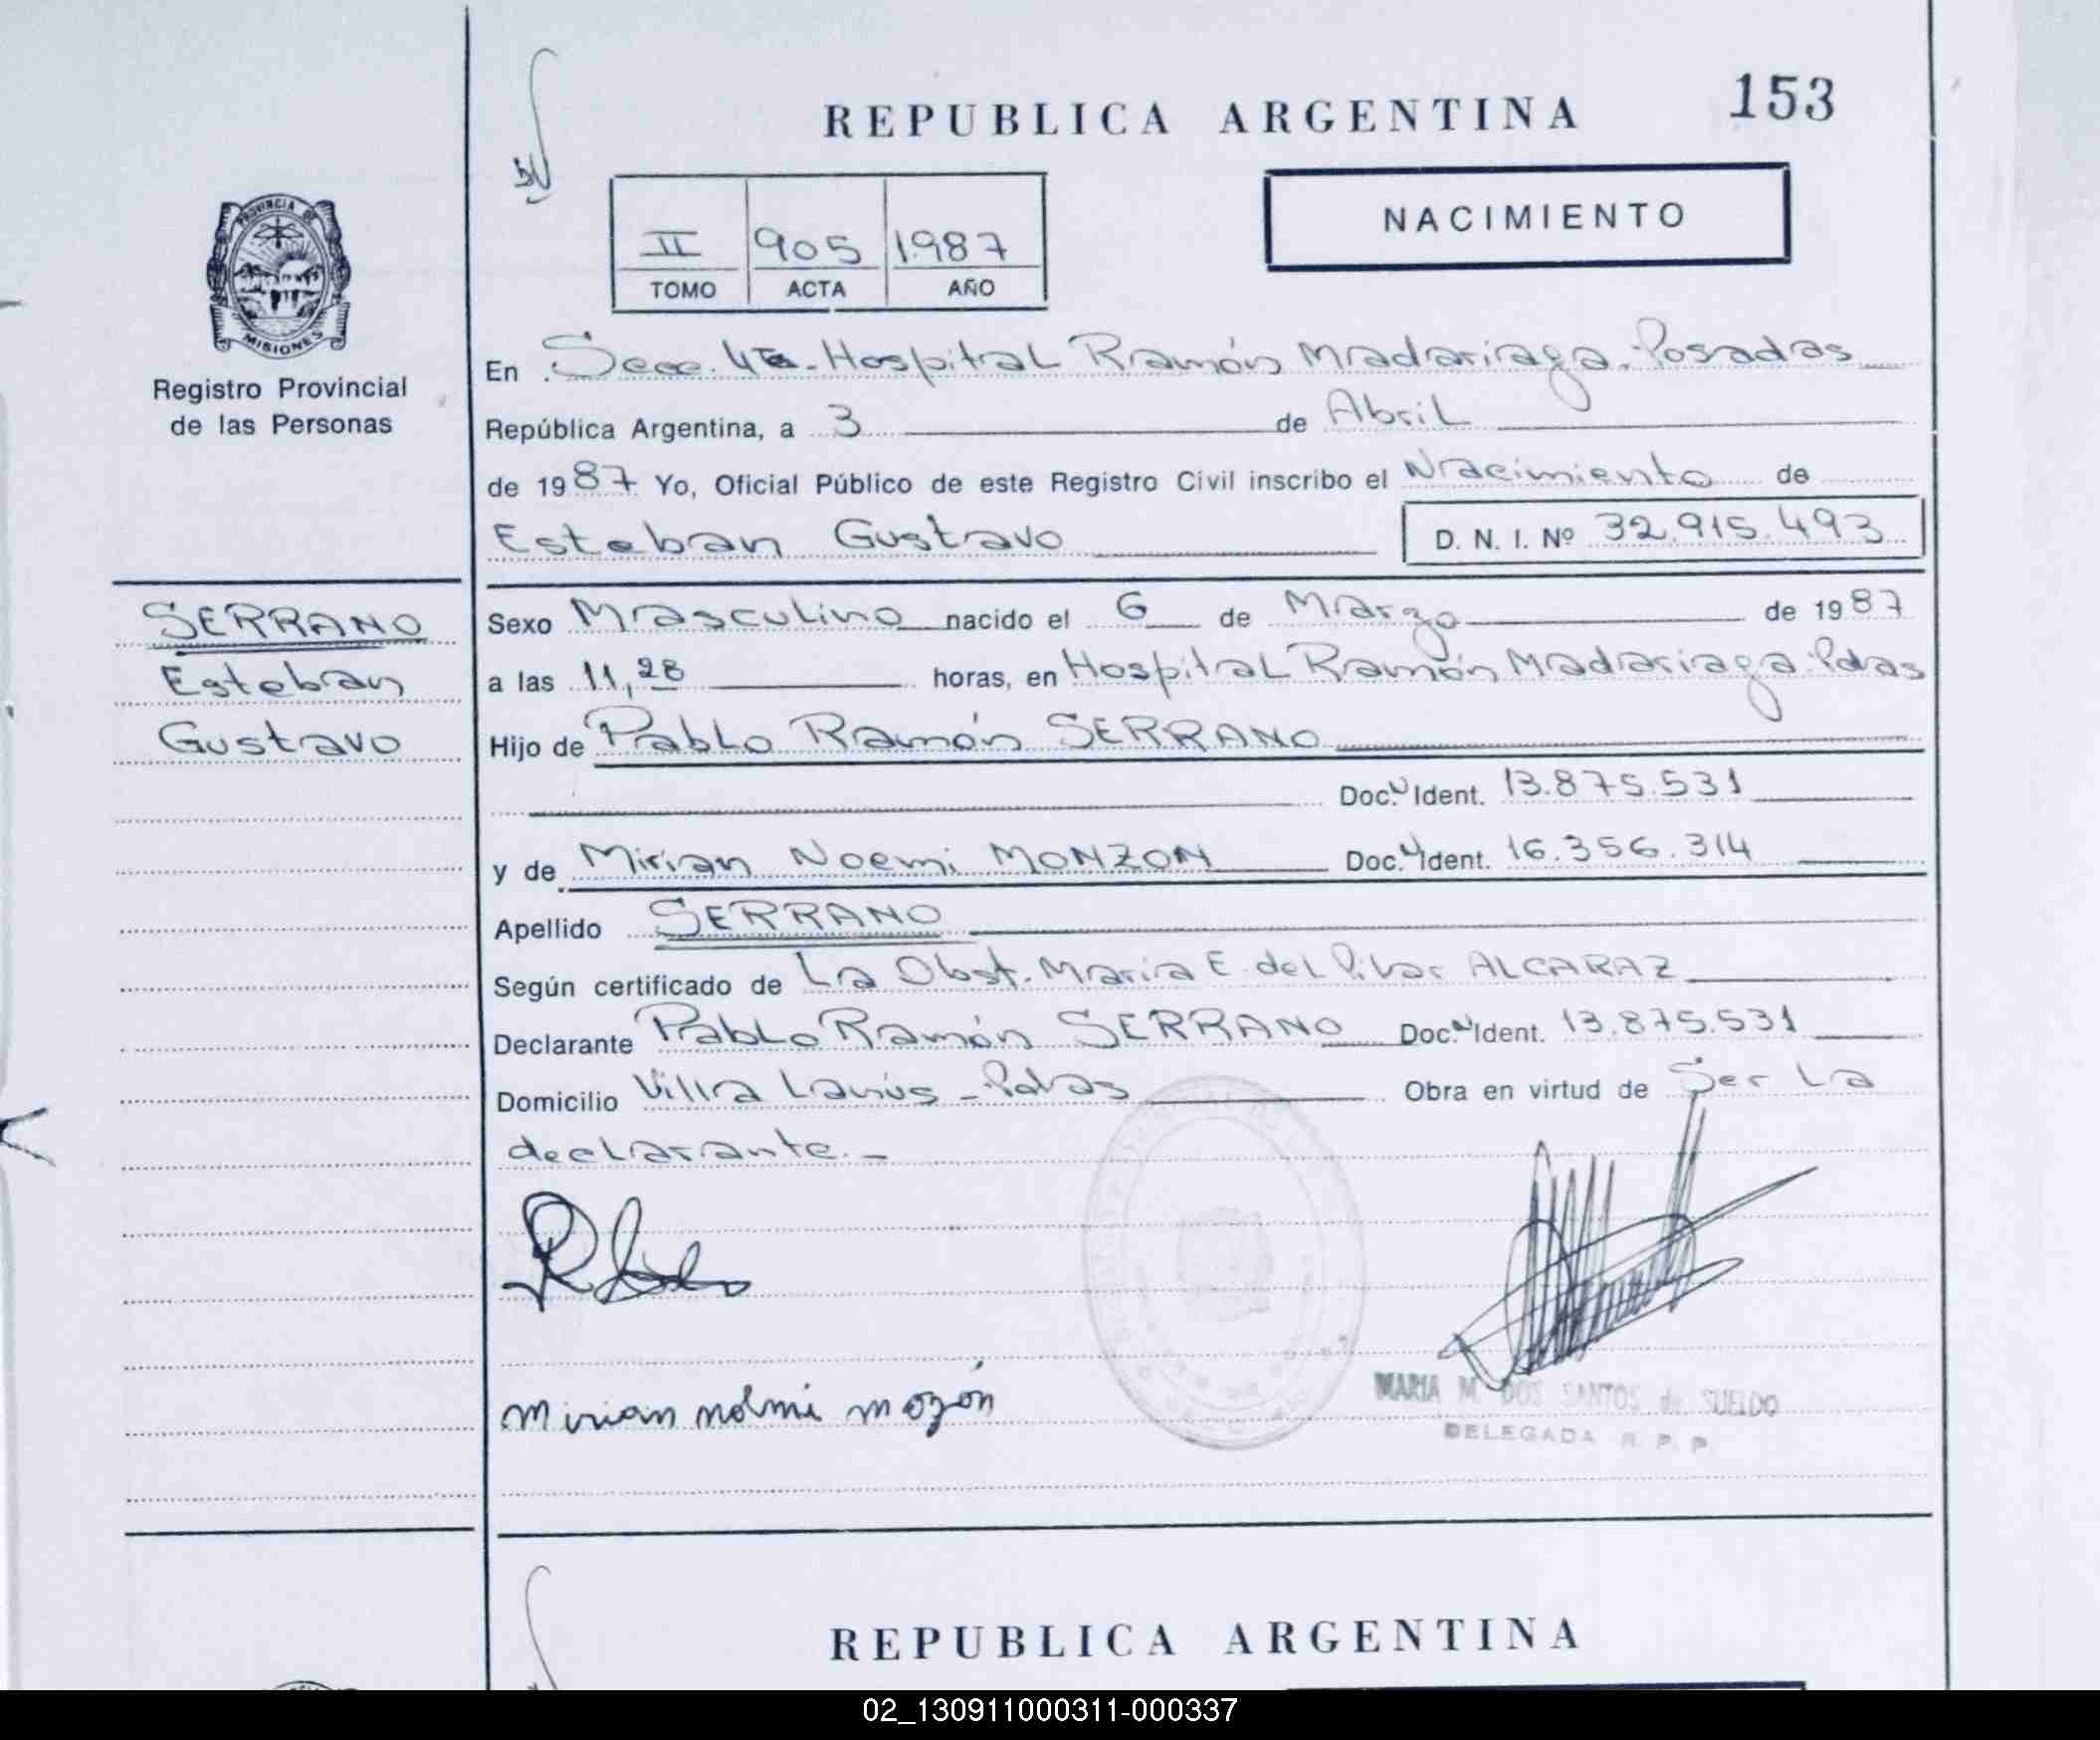 REPUBLICA ARGENTINA 153
II 905 1987
TOMO ACTA AÑO
NACIMIENTO
PROVINCIA DE
MISIONES
Registro Provincial
de las Personas
En Secc. 4ta. Hospital Ramón Madariaga. Posadas
República Argentina, a 3 de Abril
de 1987 Yo, Oficial Público de este Registro Civil inscribo el Nacimiento de
Esteban Gustavo D. N. I. Nº 32.915.493
SERRANO
Esteban
Gustavo
Sexo Masculino nacido el 6 de Marzo de 1987
a las 11,28 horas, en Hospital Ramón Madariaga. Pdas
Hijo de Pablo Ramón SERRANO
Doc. Ident. 13.875.531
y de Mirian Noemi MONZON Doc. Ident. 16.356.314
Apellido SERRANO
Según certificado de La Obst. Maria E. del Pilar ALCARAZ
Declarante Pablo Ramón SERRANO Doc. Ident. 13.875.531
Domicilio Villa Lanús - Pdas Obra en virtud de Ser La
declarante. -
mirian nolmi mozón
MARIA M. DOS SANTOS de SUELDO
DELEGADA R. P. P.
REPUBLICA ARGENTINA
02_130911000311-000337